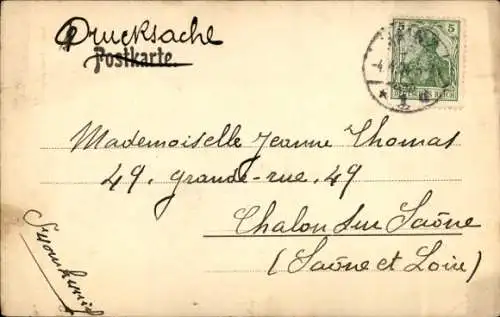 Drucksache
Postkarte.
5 5
DEUTSCHES REICH
Mademoiselle Jeanne Thomas
49, grande-rue, 49
Chalon sur Saône
(Saône et Loire)